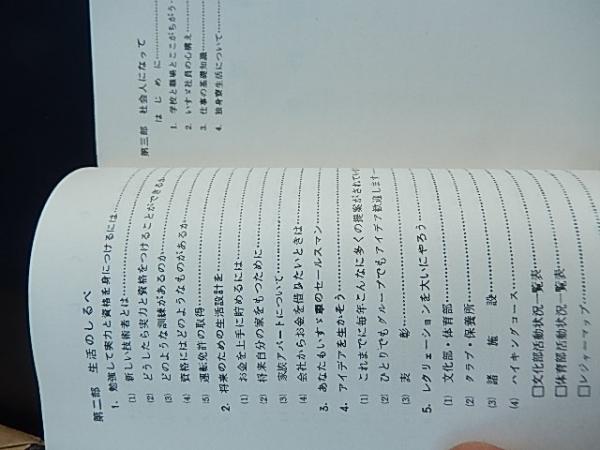 第二部 生活のしるべ
1. 勉強して実力と資格を身につけるには
(1) 新しい技術者とは
(2) どうしたら実力と資格をつけることができるか
(3) どのような訓練があるのか
(4) 資格にはどのようなものがあるか
(5) 運転免許の取得
2. 将来のための生活設計を
(1) お金を上手に貯めるには
(2) 将来自分の家をもつために
(3) 家族アパートについて
(4) 会社からお金を借りたいときは
3. あなたもいすゞ車のセールスマン
4. アイデアを生かそう
(1) これまでに毎年こんなに多くの提案がされてい
(2) ひとりでもグループでもアイデア歓迎します
(3) 表彰
5. レクリェーションを大いにやろう
(1) 文化部・体育部
(2) クラブ・保養所
(3) 諸施設
(4) ハイキングコース
□文化部活動状況一覧表
□体育部活動状況一覧表
□レジャーマップ
第三部 社会人になって
はじめに
1. 学校と職場とここがちがう
2. いすゞ社員の心構え
3. 仕事の基礎知識
4. 独身寮生活について